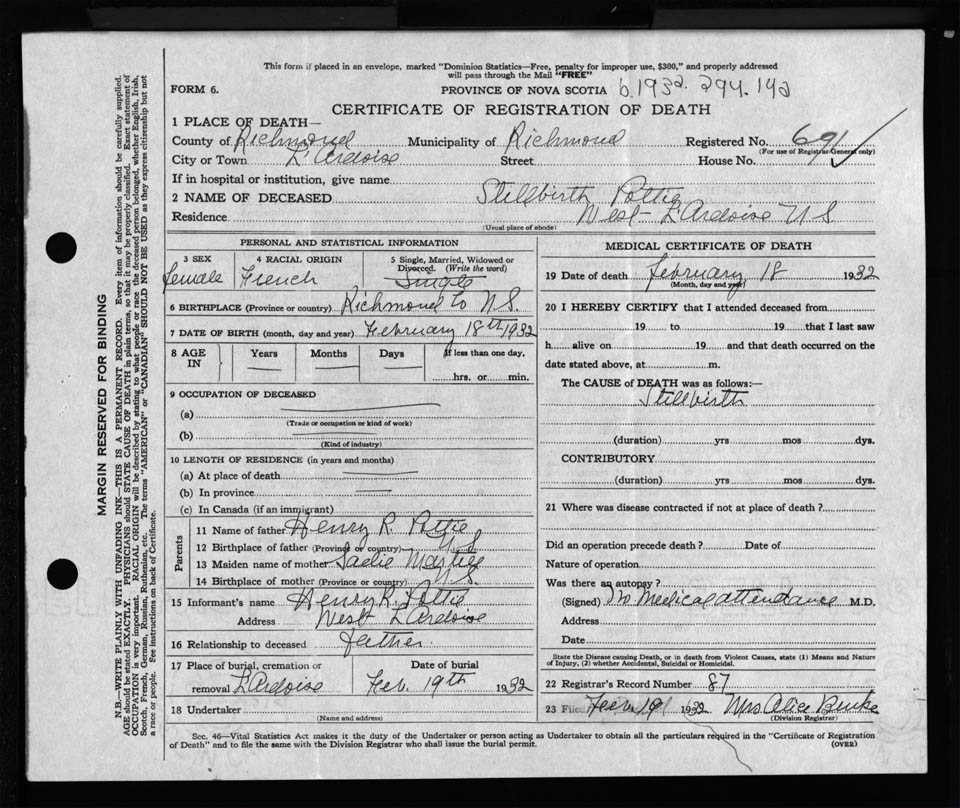 This form if placed in an envelope, marked "Dominion Statistics—Free, penalty for improper use, $300," and properly addressed
will pass through the Mail "FREE"
FORM 6.
PROVINCE OF NOVA SCOTIA b.1932. 294.142
CERTIFICATE OF REGISTRATION OF DEATH
1 PLACE OF DEATH—
County of Richmond Municipality of Richmond Registered No. 691
(For use of Registrar-General only)
City or Town L'Ardoise Street House No.
If in hospital or institution, give name
2 NAME OF DECEASED Stillbirth Pottie
Residence West L'Ardoise N S
(Usual place of abode)
PERSONAL AND STATISTICAL INFORMATION
3 SEX Female
4 RACIAL ORIGIN French
5 Single, Married, Widowed or
Divorced. (Write the word)
Single
6 BIRTHPLACE (Province or country) Richmond Co N.S.
7 DATE OF BIRTH (month, day and year) February 18th 1932
8 AGE IN Years Months Days If less than one day.
hrs. or min.
9 OCCUPATION OF DECEASED
(a)
(Trade or occupation or kind of work)
(b)
(Kind of industry)
10 LENGTH OF RESIDENCE (in years and months)
(a) At place of death
(b) In province
(c) In Canada (if an immigrant)
Parents
11 Name of father Henry R. Pottie
12 Birthplace of father (Province or country) N S
13 Maiden name of mother Sadie
14 Birthplace of mother (Province or country) N.S.
15 Informant's name Henry R. Pottie
Address West L'Ardoise
16 Relationship to deceased father
17 Place of burial, cremation or
removal L'Ardoise
Date of burial
Feb. 19th 1932
18 Undertaker
(Name and address)
MEDICAL CERTIFICATE OF DEATH
19 Date of death February 18 1932
(Month, day and year)
20 I HEREBY CERTIFY that I attended deceased from
19 to 19 that I last saw
h alive on 19 and that death occurred on the
date stated above, at m.
The CAUSE of DEATH was as follows:—
Stillbirth
(duration) yrs mos dys.
CONTRIBUTORY
(duration) yrs mos dys.
21 Where was disease contracted if not at place of death?
Did an operation precede death? Date of
Nature of operation
Was there an autopsy?
(Signed) No Medical attendance M.D.
Address
Date
State the Disease causing Death, or in death from Violent Causes, state (1) Means and Nature
of Injury, (2) whether Accidental, Suicidal or Homicidal.
22 Registrar's Record Number 87
23 Filed Feb 19 1932 Mrs Alice Burke
(Division Registrar)
Sec. 46—Vital Statistics Act makes it the duty of the Undertaker or person acting as Undertaker to obtain all the particulars required in the "Certificate of Registration
of Death" and to file the same with the Division Registrar who shall issue the burial permit.
(OVER)
MARGIN RESERVED FOR BINDING
N.B.—WRITE PLAINLY WITH UNFADING INK—THIS IS A PERMANENT RECORD. Every item of information should be carefully supplied.
AGE should be stated EXACTLY. PHYSICIANS should STATE CAUSE OF DEATH in plain terms, so that it may be properly classified. Exact statement of
OCCUPATION is very important. RACIAL ORIGIN will be described by stating to what people or race the deceased person belonged, whether English, Irish,
Scotch, French, German, Russian, Ruthenian, etc. The terms "AMERICAN" or "CANADIAN" SHOULD NOT BE USED as they express citizenship but not
a race or people. See instructions on back of Certificate.